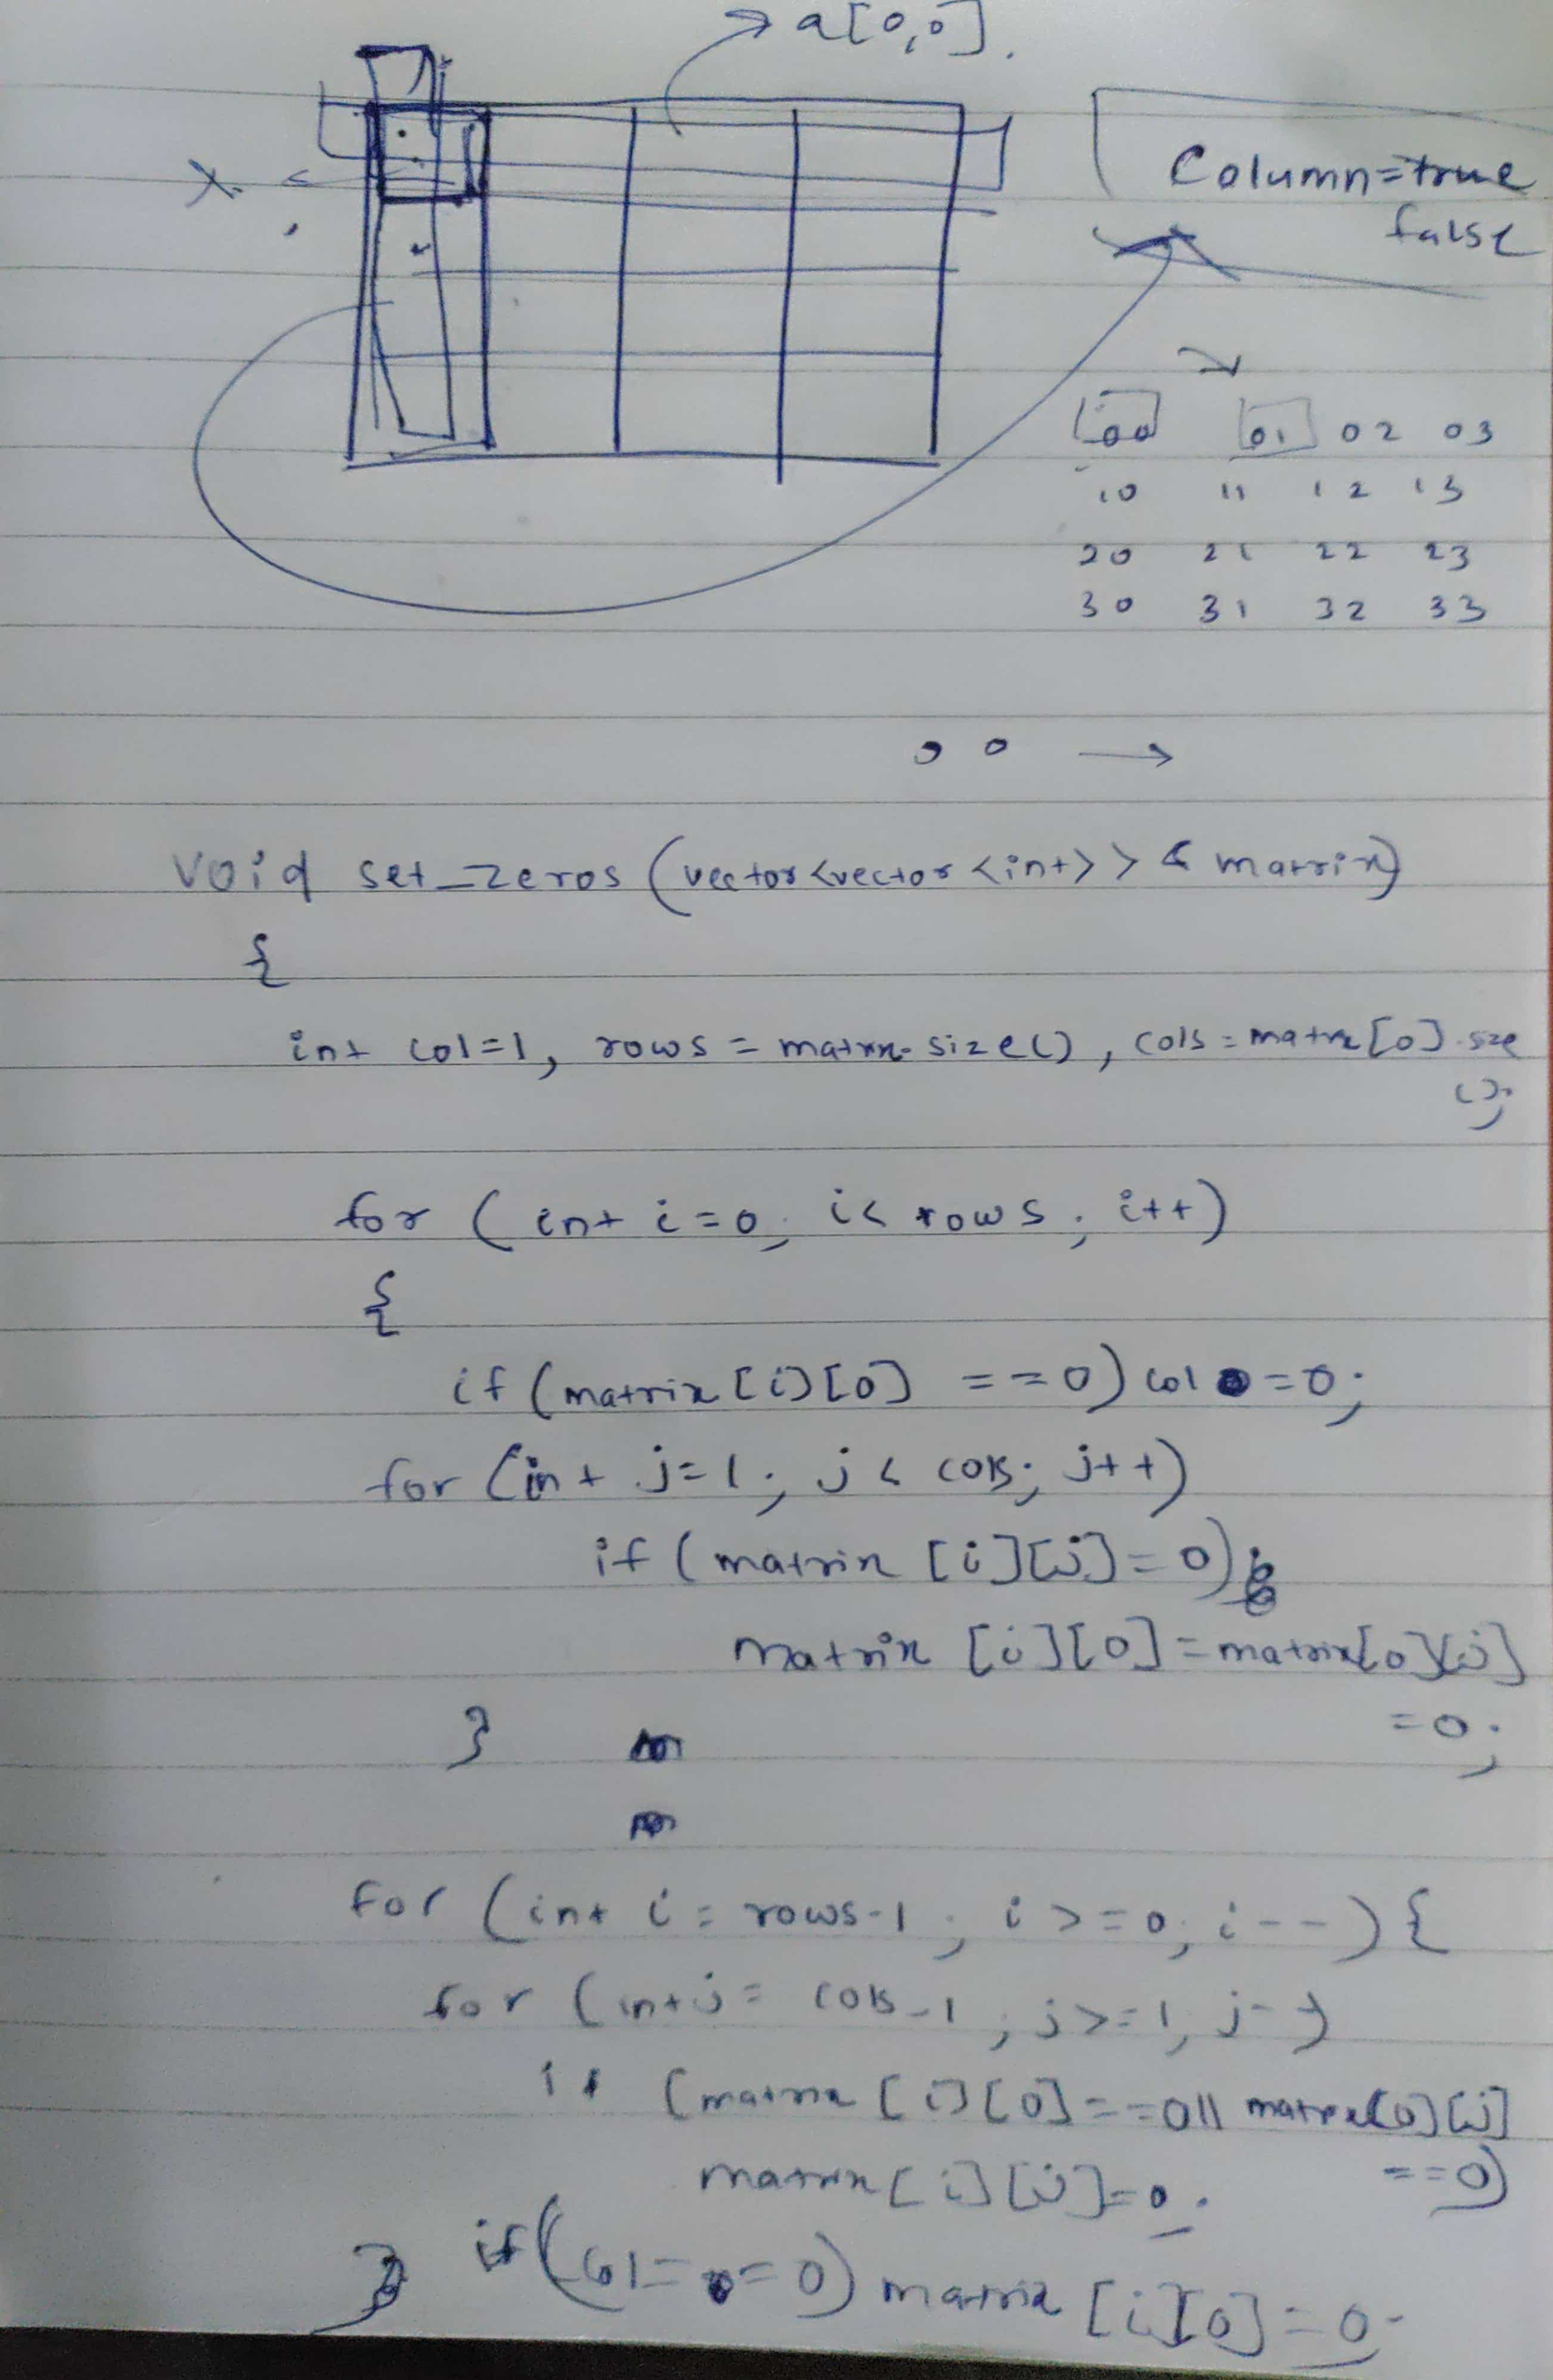 a[0,0].
X.
Column=true
false
00 01 02 03
10 11 12 13
20 21 22 23
30 31 32 33
0 0 →
void set_zeros (vector<vector<int>> & matrix)
{
int col=1, rows = matrix.size(), cols = matrix[0].size
();
for (int i=0; i< rows; i++)
{
if (matrix[i][0] ==0) col =0;
for (int j=1; j< cols; j++)
if (matrix [i][j]=0)
matrix [i][0]=matrix[0][j]
=0;
}
for (int i = rows-1; i>=0; i--) {
for (int j = cols-1; j>=1; j--)
if (matrix [i][0]==0|| matrix[0][j]
==0)
matrix[i][j]=0.
} if (col==0) matrix [i][0]=0.